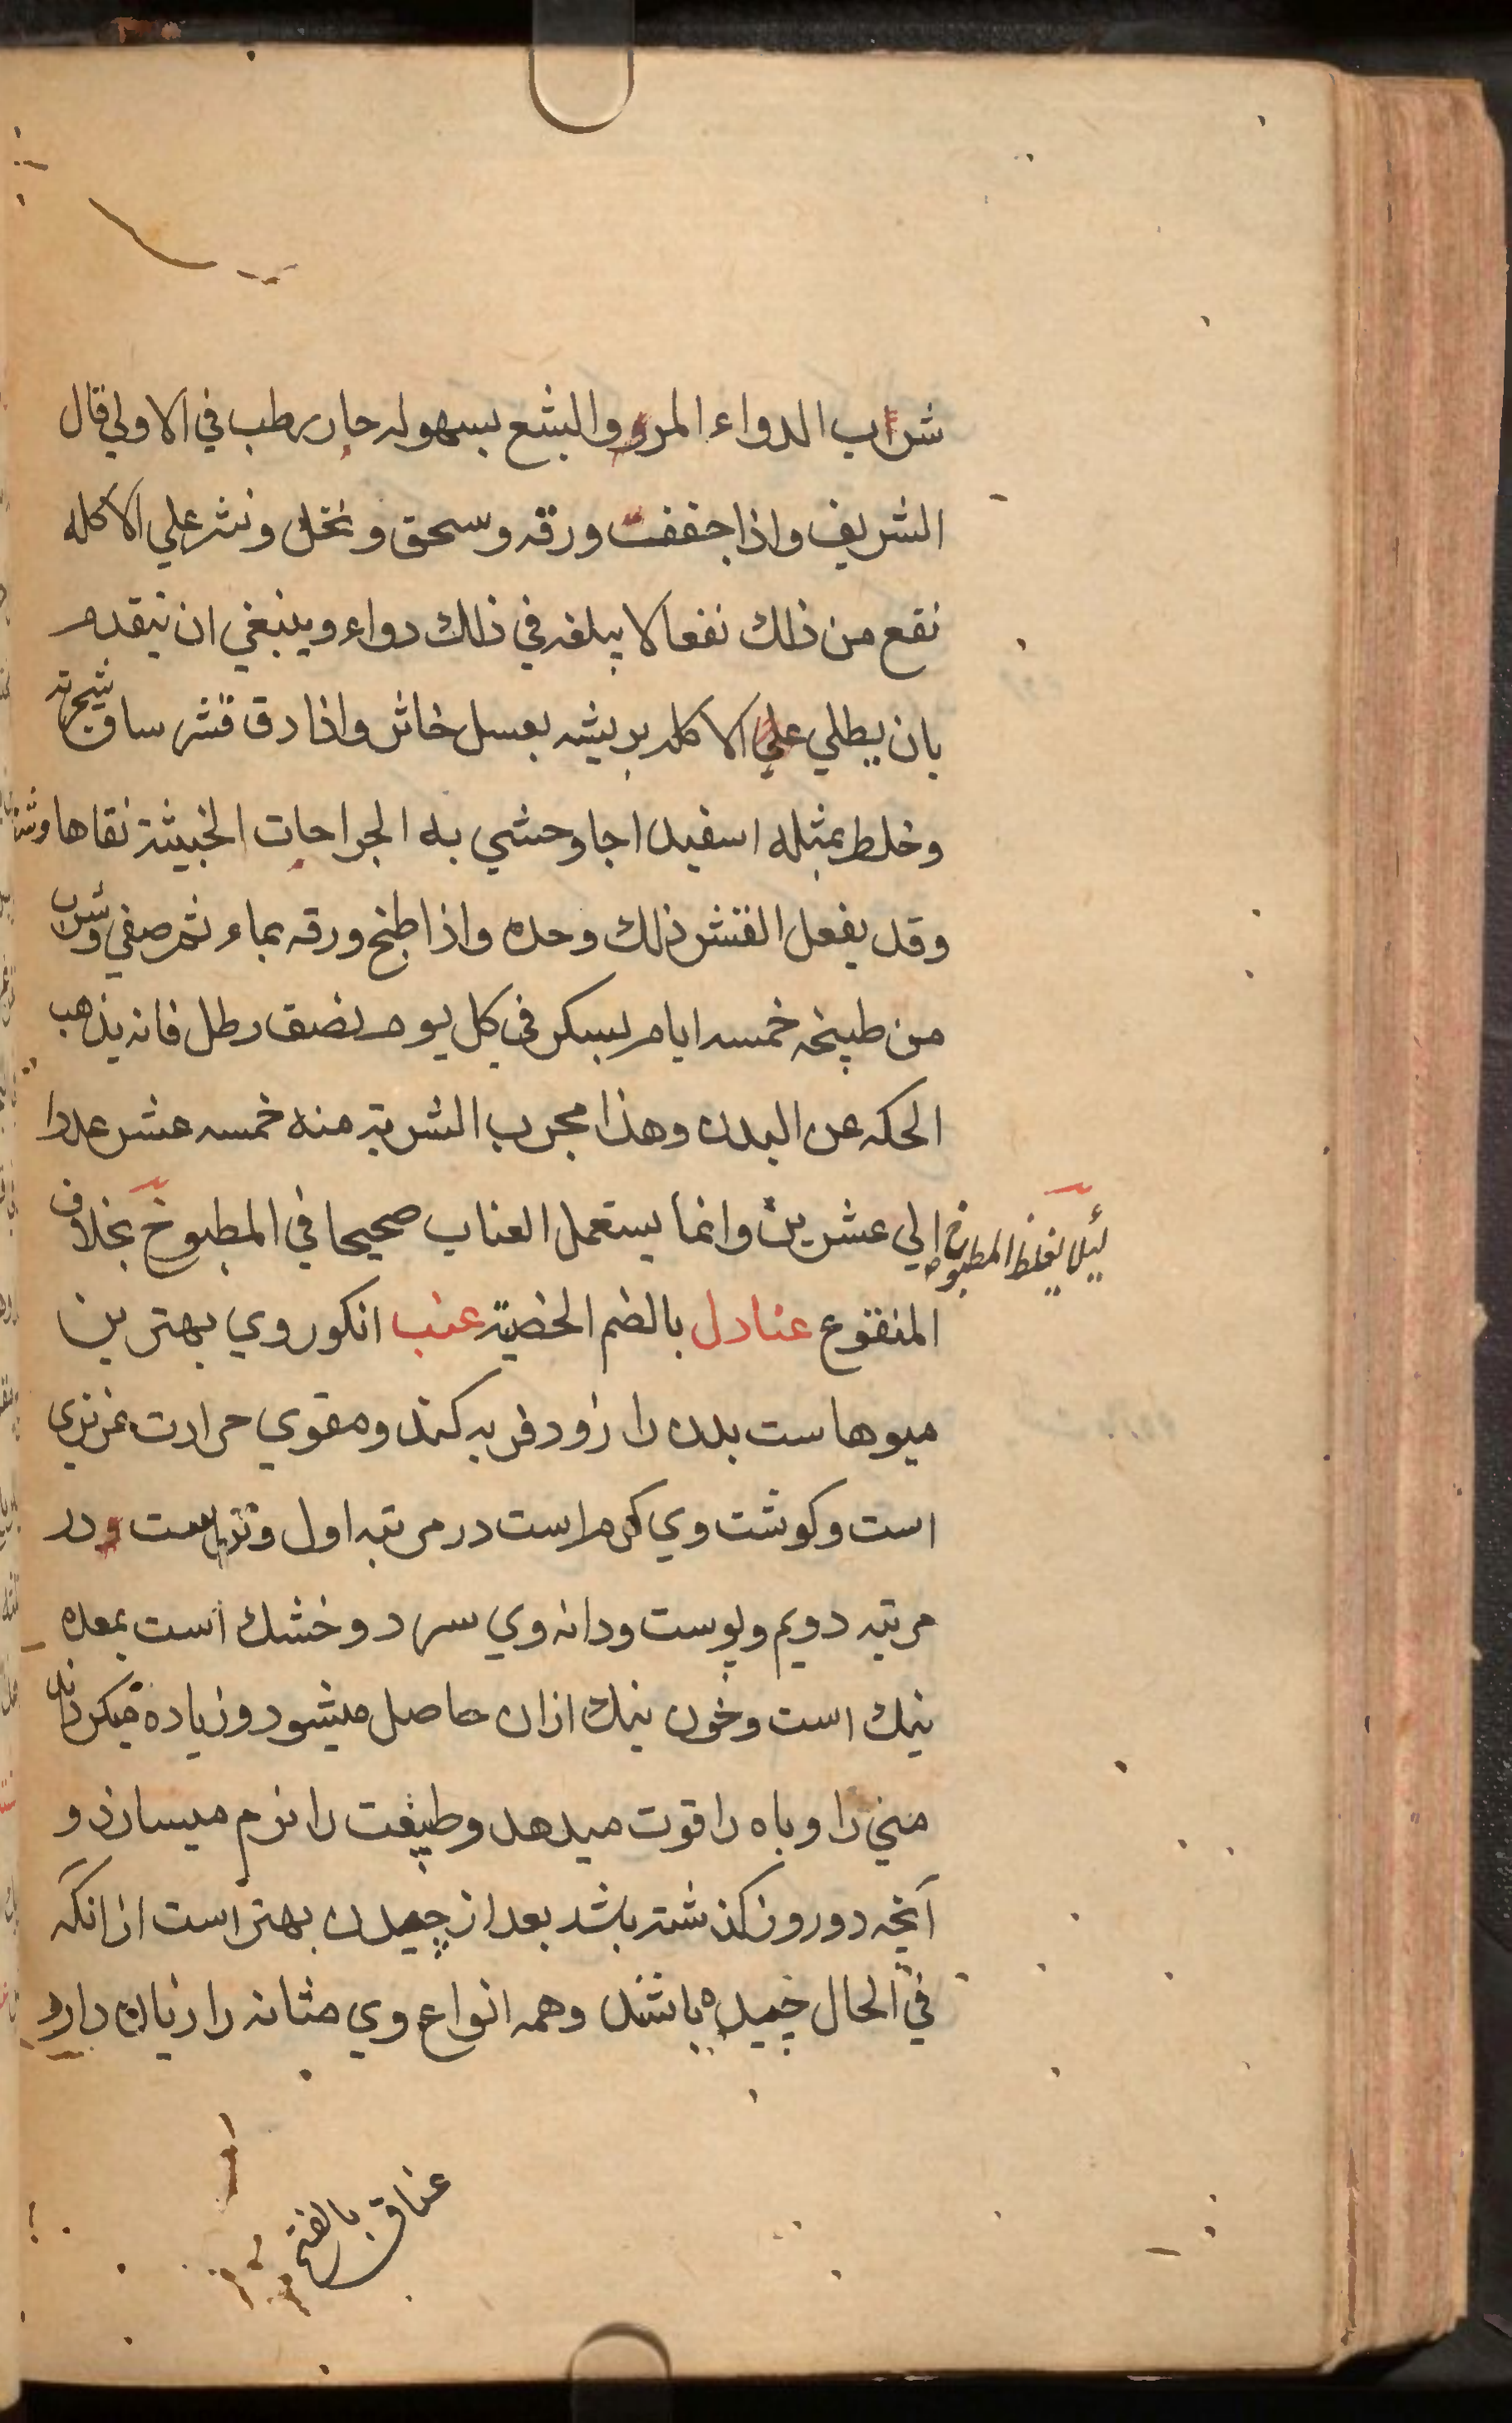 شراب الدواء المر والبشع بسهوله حار رطب في الاولي قال
الشريف واذا جففت ورقه وسحق ونخل ونثر علي الاكله
نفع من ذلك نفعا لا يبلغه في ذلك دواء وينبغي ان يتقدم
بان يطلي علي الاكله بريشه بعسل خاثر واذا دق قشر ساق شجرته
وخلط بمثله اسفيداجا وحشي به الجراحات الخبيثة نقاها
وقد يفعل القشر ذلك وحده واذا طبخ ورقه بماء ثم صفي وشرب
من طبيخه خمسه ايام بسكر في كل يوم نصف رطل فانه يذهب
الحكه عن البدن وهذا مجرب الشربة منه خمسه عشر عددا
الي عشرين وانما يستعمل العناب صحيحا في المطبوخ بخلاف
لئلا يغلظ المطبوخ
المنقوع عنادل بالضم الخصية عنب انكور وي بهترين
ميوهاست بدن را زود فربه كند ومقوي حرارت غريزي
است وكوشت وي كرم است در مرتبه اول وتر است در
مرتبه دويم وپوست ودانه وي سرد وخشك است بمعده
نيك است وخون نيك ازان حاصل ميشود وزياده ميكرداند
مني را وباه را قوت ميدهد وطبيعت را نرم ميسازد و
آنچه دو روز كذشته باشد بعد از چيدن بهتر است از انكه
في الحال چيده باشند وهمه انواع وي مثانه را زيان دارد
عناق بالفتح